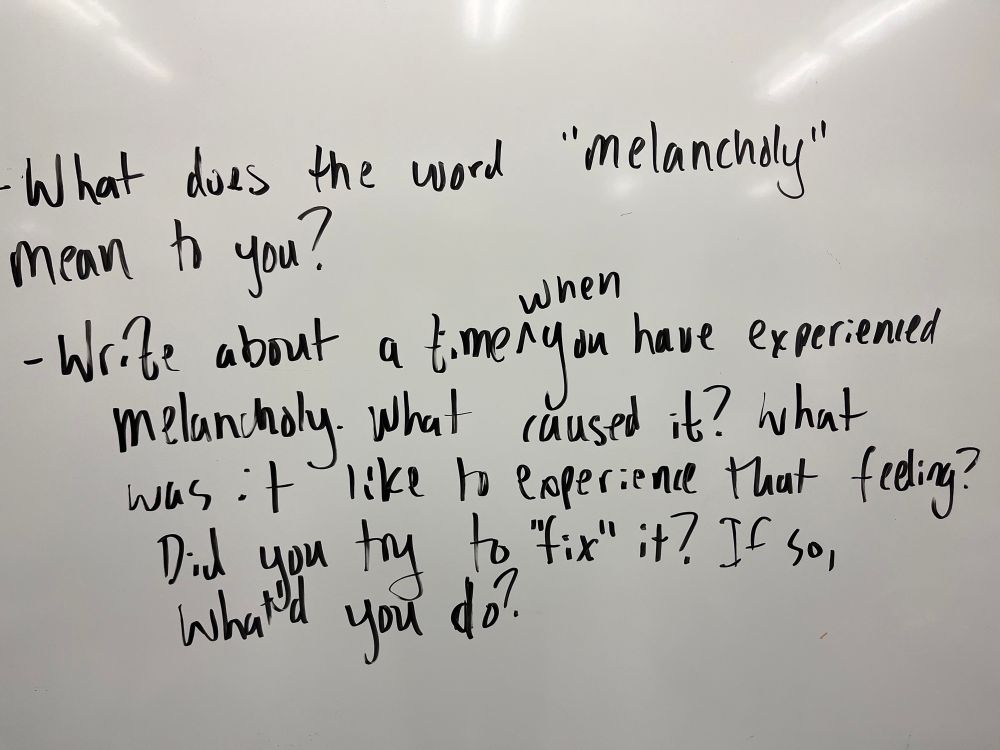 - What does the word "melancholy"
mean to you?
- Write about a time ^when you have experienced
melancholy. What caused it? What
was it like to experience that feeling?
Did you try to "fix" it? If so,
What'd you do?